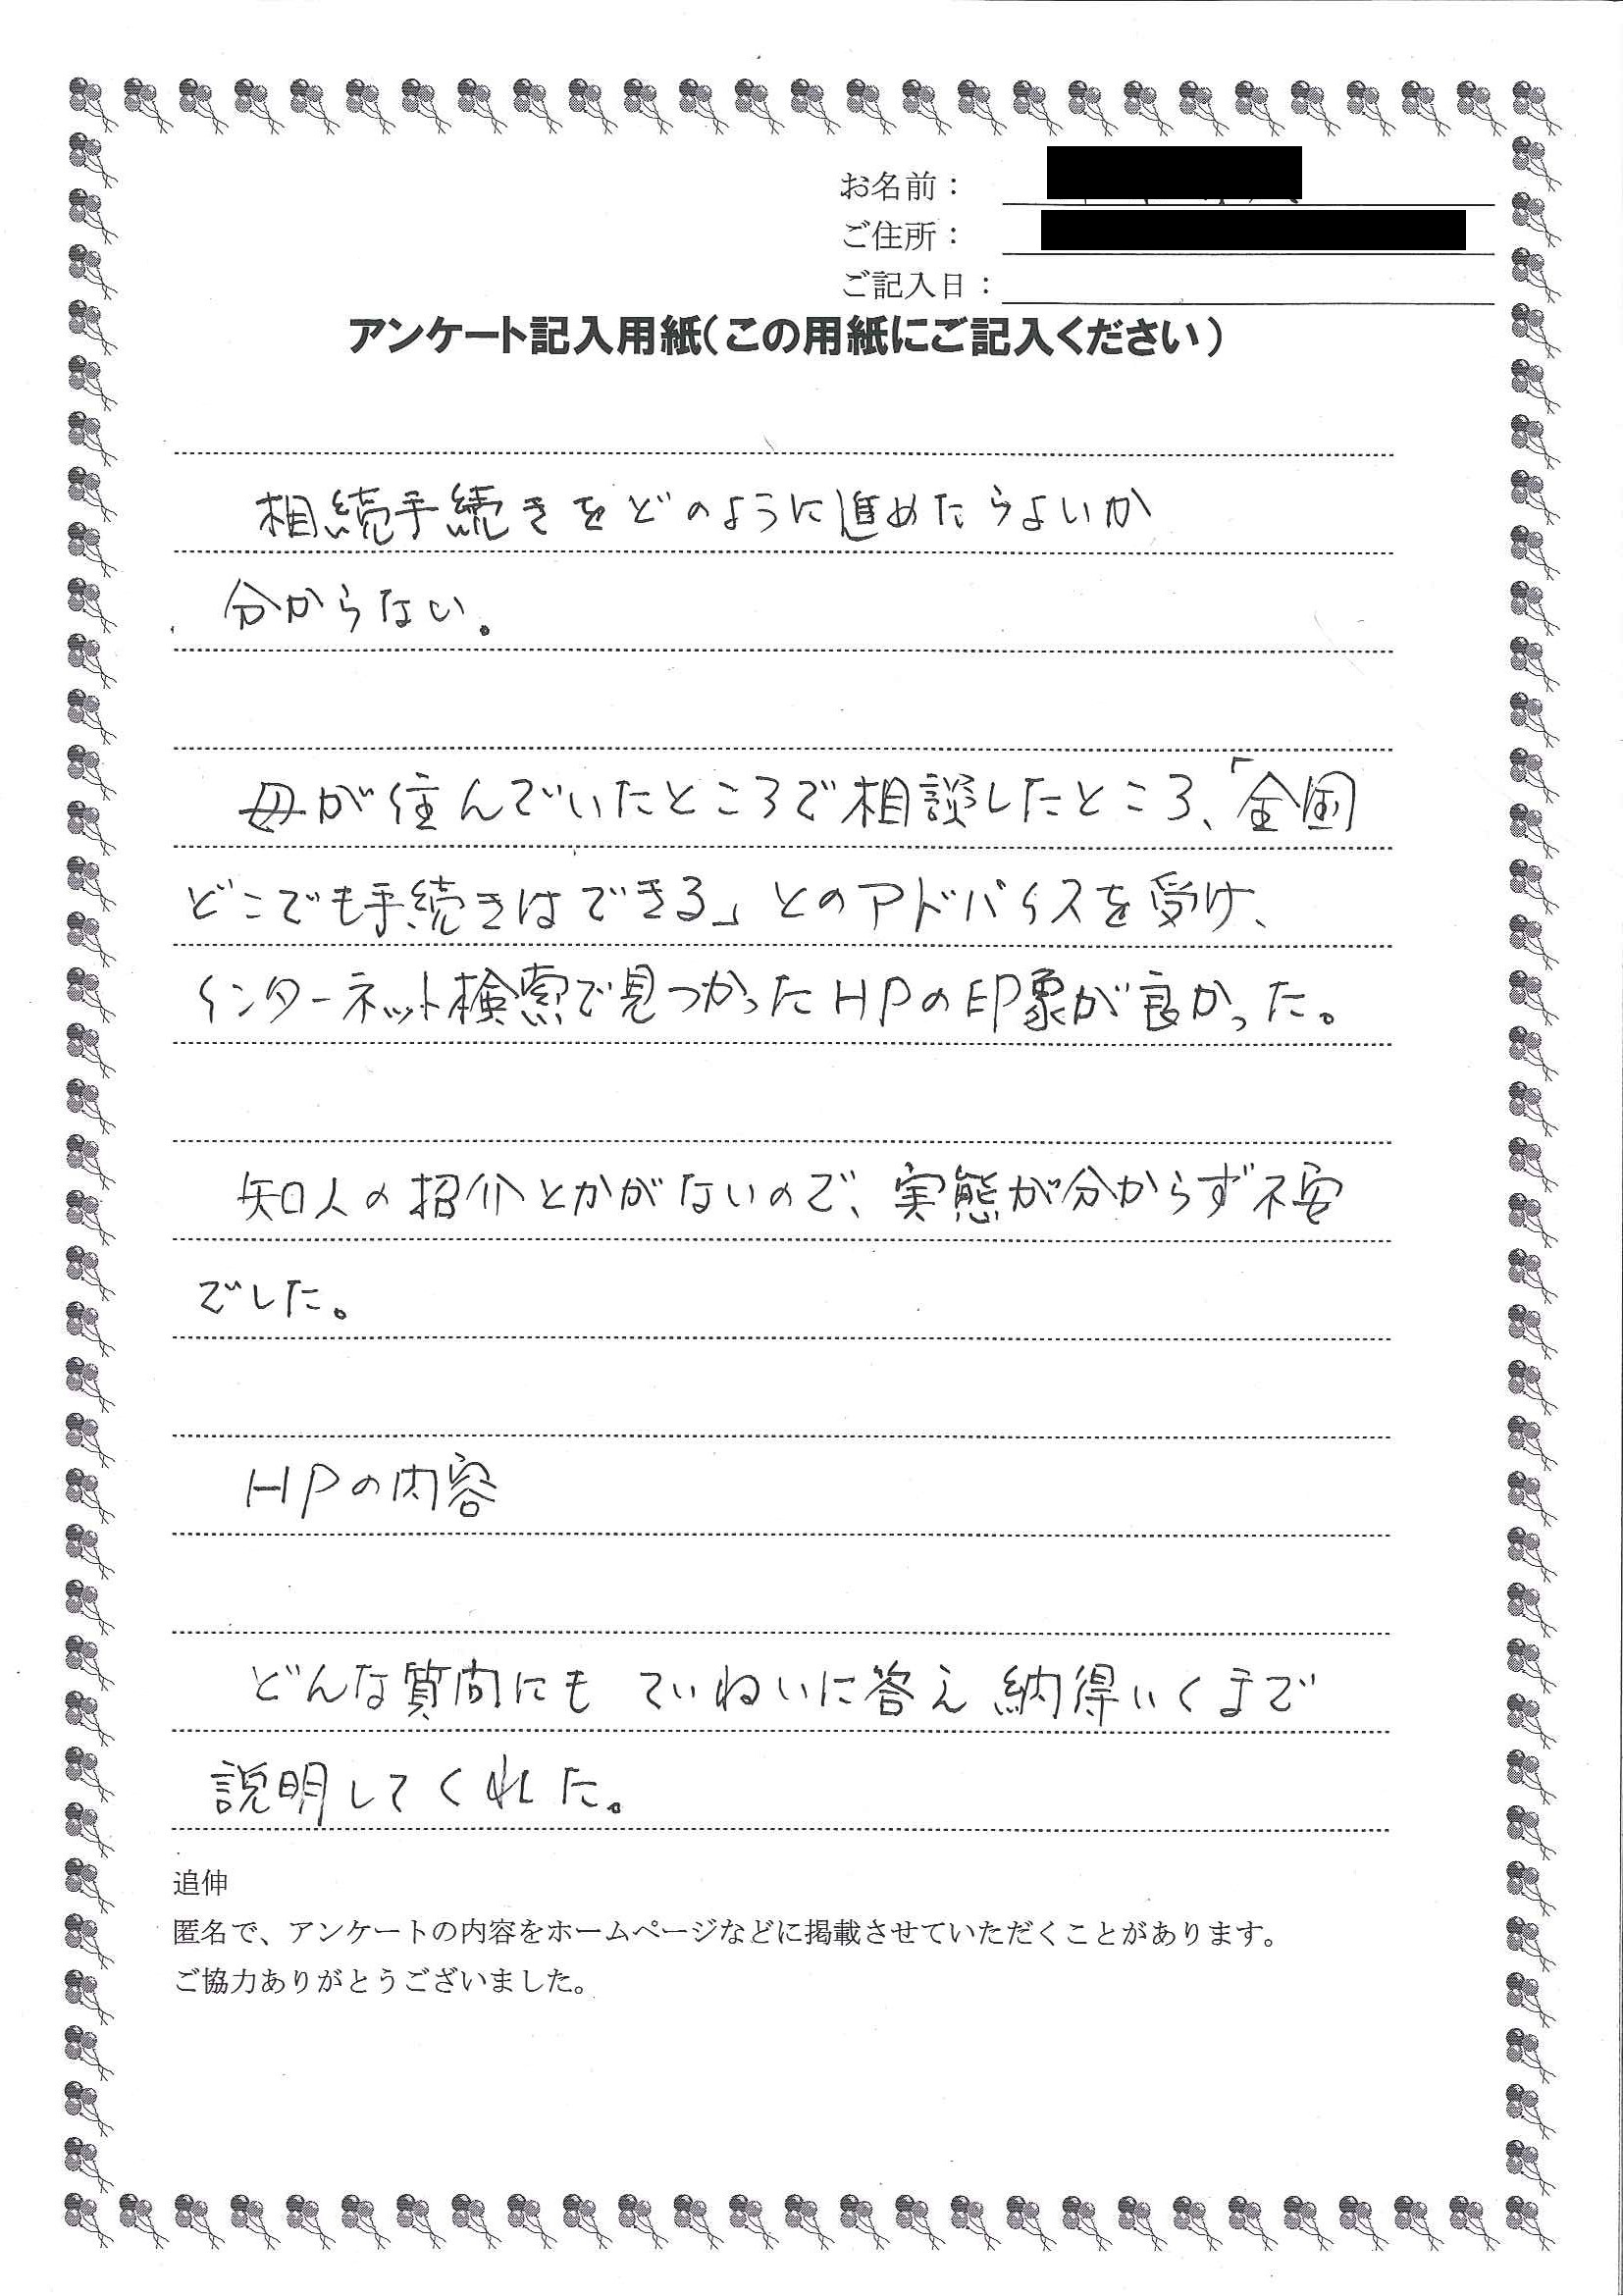 お名前：
ご住所：
ご記入日：
アンケート記入用紙（この用紙にご記入ください）
相続手続きをどのように進めたらよいか
分からない。
母が住んでいたところで相談したところ、「全国
どこでも手続きはできる」とのアドバイスを受け、
インターネット検索で見つかったHPの印象が良かった。
知人の紹介とかがないので、実態が分からず不安
でした。
HPの内容
どんな質問にも ていねいに答え 納得いくまで
説明してくれた。
追伸
匿名で、アンケートの内容をホームページなどに掲載させていただくことがあります。
ご協力ありがとうございました。